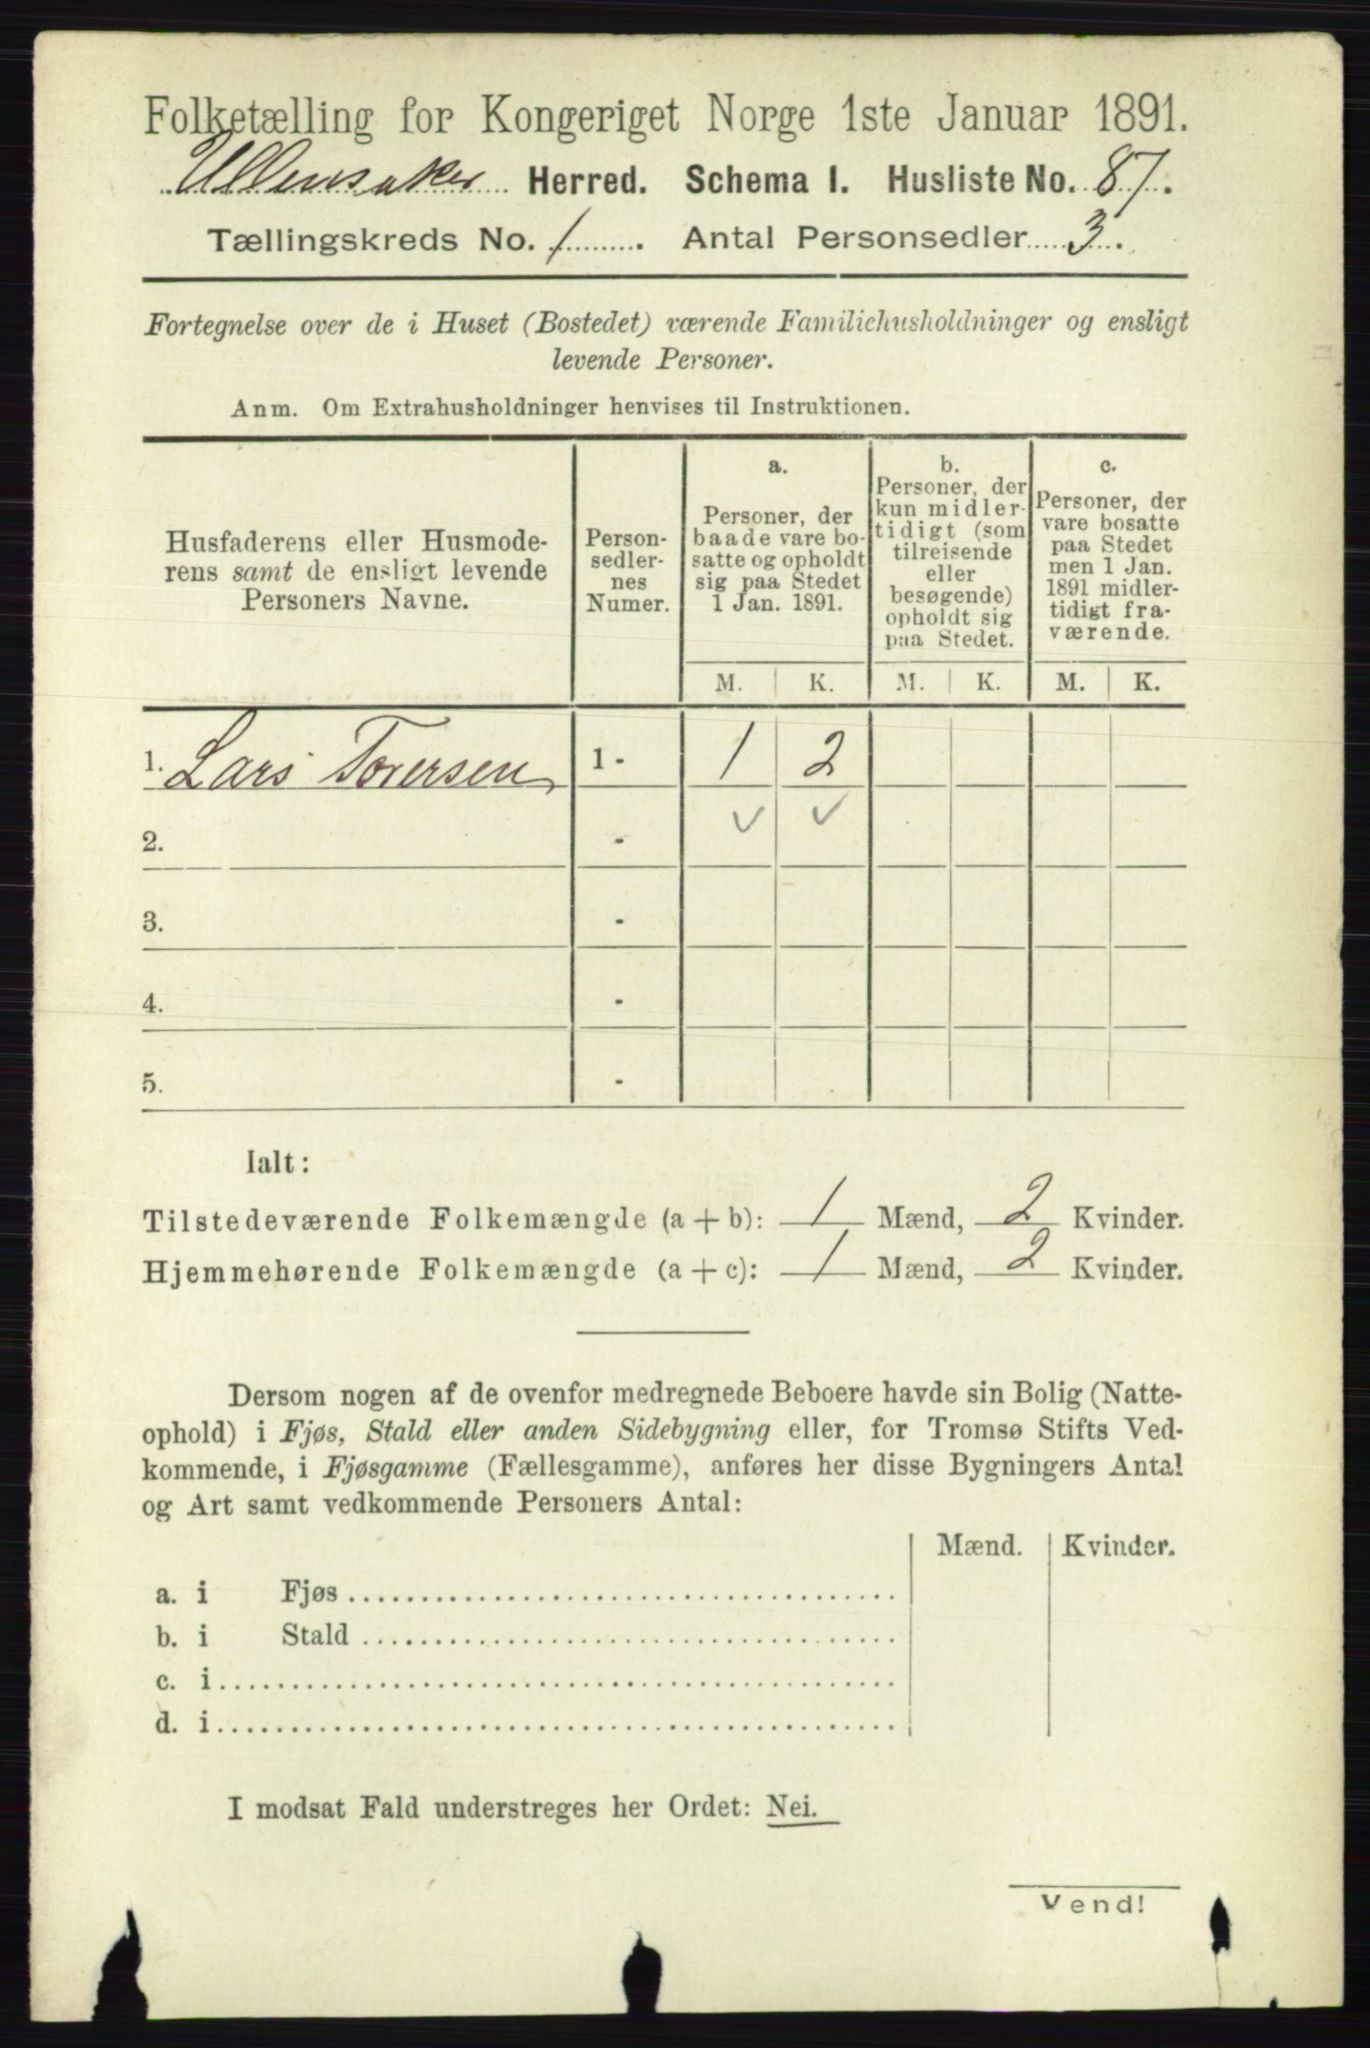 Folketælling for Kongeriget Norge 1ste Januar 1891.
Ullensaker Herred. Schema I. Husliste No. 87.
Tællingskreds No. 1. Antal Personsedler 3.
Fortegnelse over de i Huset (Bostedet) værende Familiehusholdninger og ensligt
levende Personer.
Anm. Om Extrahusholdninger henvises til Instruktionen.
Husfaderens eller Husmode-
rens samt de ensligt levende
Personers Navne.
Person-
sedler-
nes
Numer.
a.
Personer, der
baade vare bo-
satte og opholdt
sig paa Stedet
1 Jan. 1891.
b.
Personer, der
kun midler-
tidigt (som
tilreisende
eller
besøgende)
opholdt sig
paa Stedet.
c.
Personer, der
vare bosatte
paa Stedet
men 1 Jan.
1891 midler-
tidigt fra-
værende.
M. K. M. K. M. K.
1. Lars Torersen 1 - 1 2
2. - ✓ ✓
3. -
4. -
5. -
Ialt:
Tilstedeværende Folkemængde (a + b): 1 Mænd, 2 Kvinder.
Hjemmehørende Folkemængde (a + c): 1 Mænd, 2 Kvinder.
Dersom nogen af de ovenfor medregnede Beboere havde sin Bolig (Natte-
ophold) i Fjøs, Stald eller anden Sidebygning eller, for Tromsø Stifts Ved-
kommende, i Fjøsgamme (Fællesgamme), anføres her disse Bygningers Antal
og Art samt vedkommende Personers Antal:
Mænd. Kvinder.
a. i Fjøs
b. i Stald
c. i
d. i
I modsat Fald understreges her Ordet: Nei.
Vend!